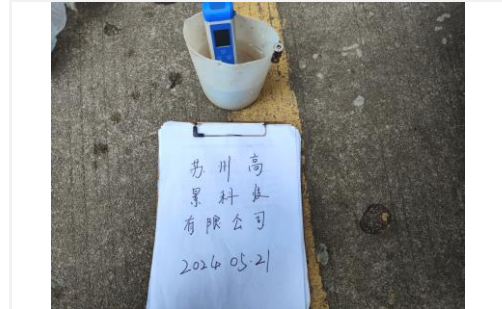 苏州高
景科技
有限公司
2024.05.21